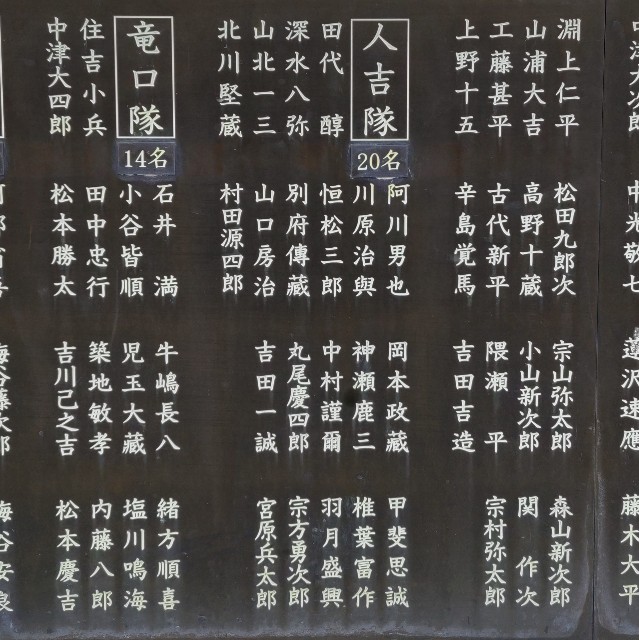 藤木大平
淵上仁平 松田九郎次 宗山弥太郎 森山新次郎
山浦大吉 高野十蔵 小山新次郎 関 作次
工藤甚平 古代新平 隈瀬 平 宗村弥太郎
上野十五 辛島覚馬 吉田吉造
人吉隊
20名
阿川男也 岡本政蔵 甲斐思誠
川原治與 神瀬鹿三 椎葉富作
田代 醇 恒松三郎 中村謹爾 羽月盛興
深水八弥 別府傳藏 丸尾慶四郎 宗方勇次郎
山北一三 山口房治 吉田一誠 宮原兵太郎
北川堅蔵 村田源四郎
竜口隊
14名
石井 満 牛嶋長八 緒方順喜
小谷皆順 児玉大藏 塩川鳴海
住吉小兵 田中忠行 築地敏孝 内藤八郎
中津大四郎 松本勝太 吉川己之吉 松本慶吉